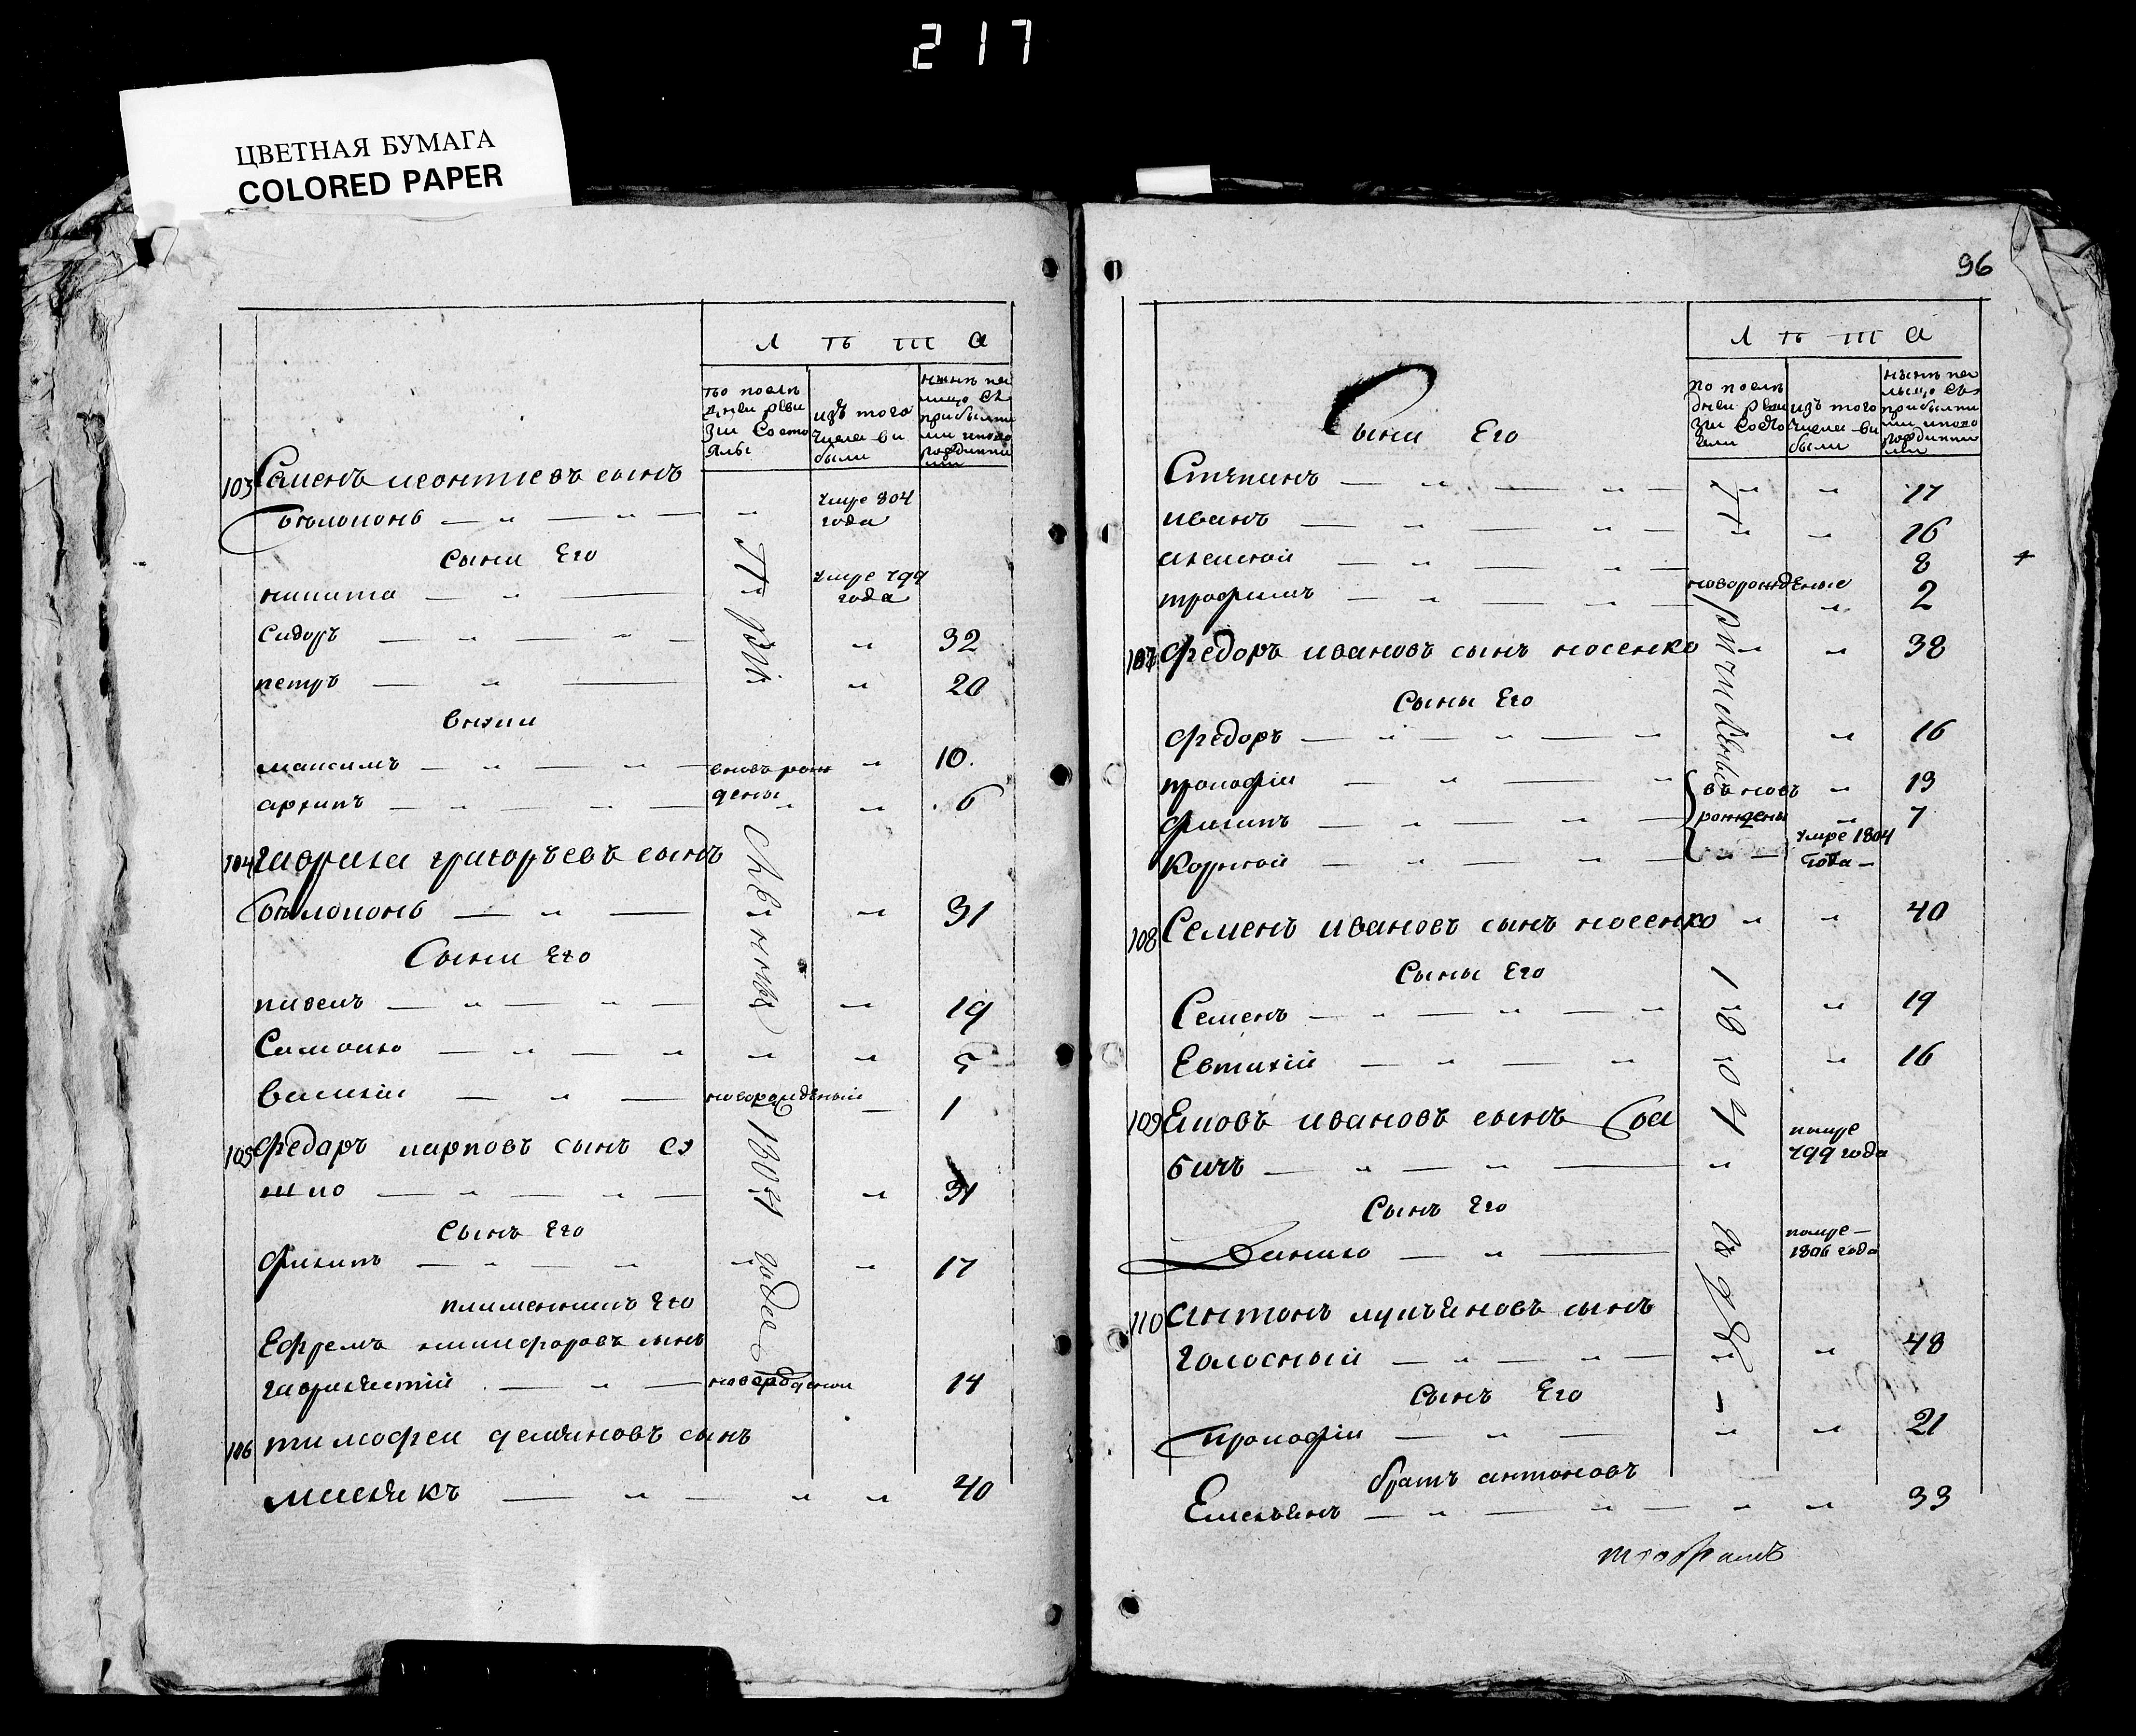 217
ЦВЕТНАЯ БУМАГА
COLORED PAPER
Л Ѣ Т А
по послѣ
дней реви
зіи состо
ялы
изъ того
числа вы
были
нынѣ на
лицо съ
прибылы
ми и ново
рожденны
ми
103 Семенъ леонтіевъ сынъ
бѣлоконь — „ — „ — „ умре 804
года
сыни Его
никита — „ — умре 799
года
сидоръ — „ — „ — „ 32
петръ — „ — „ 20
внуки
максимъ — „ — „ — вновь рож „ 10.
архипъ — „ — „ — дены „ „ 6
104 гаврила григорьевъ сынъ
бѣлоконь — „ — „ „ 31
Сыни Его
павелъ — „ — „ — „ 19
Самойло — „ — „ „ „ 5
василій — „ — новорожденый — 1
105 Федаръ карповъ сынъ су
шко — „ — „ — „ 31
сынъ Его
филипъ — „ — „ — „ „ 17
племенникъ Его
Ефремъ никифоровъ сынъ
— „ — 14
106 тимофеи демяновъ сынъ
— „ — „ „ 40
96
Л Ѣ Т А
по послѣ
дней реви
зіи состо
яли
изъ того
числа вы
были
нынѣ на
лицо съ
прибылы
ми и ново
рожденны
ми
Сыни Его
Степанъ — „ — „ — „ „ 17
иванъ — „ — „ — „ „ 16
алексѣй — „ — „ — 8 +
трофимъ — „ — „ — новорожденые „ 2
107 Федоръ ивановъ сынъ носенко „ „ 38
Сыны Его
Федоръ — „ — „ — „ „ 16
прокофіи — „ — „ въновъ „ 13
филипъ — „ — „ — рождены „ 7
Корнѣй — „ — „ — „ — умре 1804
года —
108 Семенъ ивановъ сынъ носенко „ „ 40
Сыны Его
Семенъ — „ — „ — „ „ 19
Евтихій — „ — „ „ 16
109 ивановъ сынъ ба
бичъ — „ — „ — „ помре
799 года
Сынъ Его
Данило — „ — помре —
1806 года
110 антонъ лукьяновъ сынъ
голосный — „ — „ — „ „ 48
сынъ Его
прокофіи — „ — „ „ 21
братъ антоновъ
Емельянъ — „ — „ — „ „ 33
1804
годе
1804